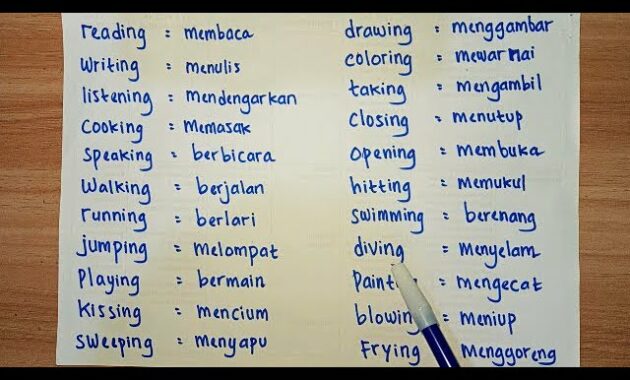 reading : membaca
writing = menulis
listening : mendengarkan
cooking = memasak
speaking = berbicara
walking = berjalan
running = berlari
jumping = melompat
playing = bermain
kissing = mencium
sweeping = menyapu
drawing : menggambar
coloring : mewarnai
taking : mengambil
closing : menutup
opening = membuka
hitting = memukul
swimming = berenang
diving = menyelam
= mengecat
blowing = meniup
Frying = menggoreng